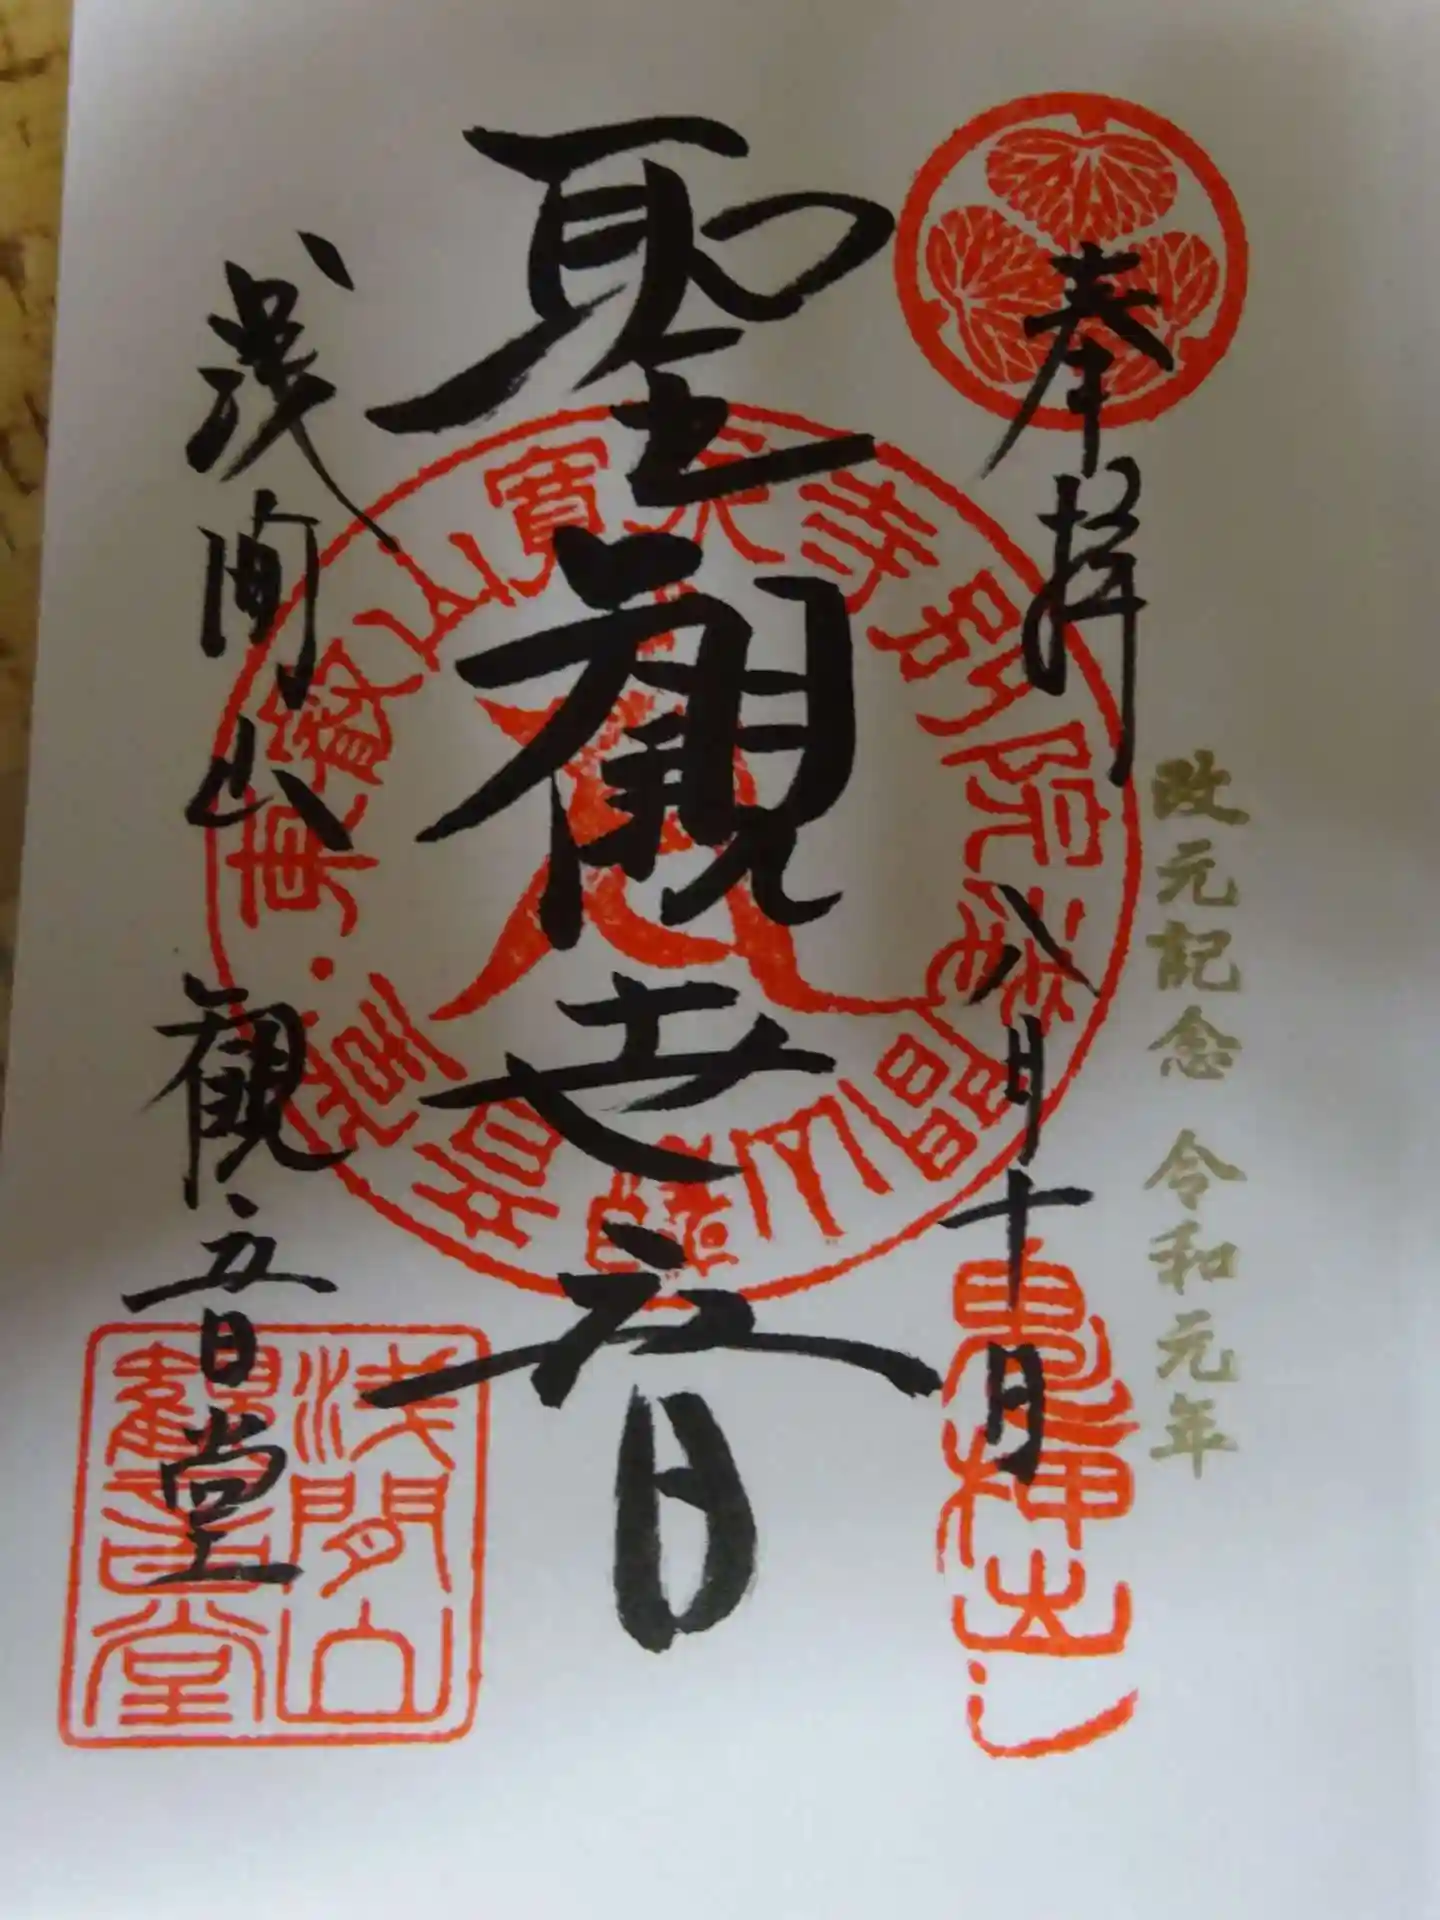 改元記念 令和元年
奉拝
八月十日
鬼押出し
聖観世音
東叡山寛永寺別院浅間山
浅間山 観音堂
浅間山
観音堂